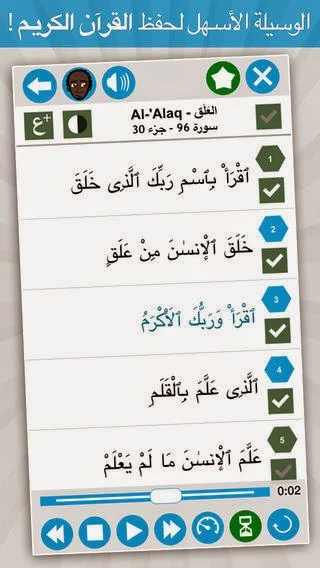 الوسيلة الأسهل لحفظ القرآن الكريم !
ع+
العلق - Al-'Alaq
سورة 96 - جزء 30
1
ٱقْرَأْ بِٱسْمِ رَبِّكَ ٱلَّذِى خَلَقَ
2
خَلَقَ ٱلْإِنسَٰنَ مِنْ عَلَقٍ
3
ٱقْرَأْ وَرَبُّكَ ٱلْأَكْرَمُ
4
ٱلَّذِى عَلَّمَ بِٱلْقَلَمِ
5
عَلَّمَ ٱلْإِنسَٰنَ مَا لَمْ يَعْلَمْ
0:02